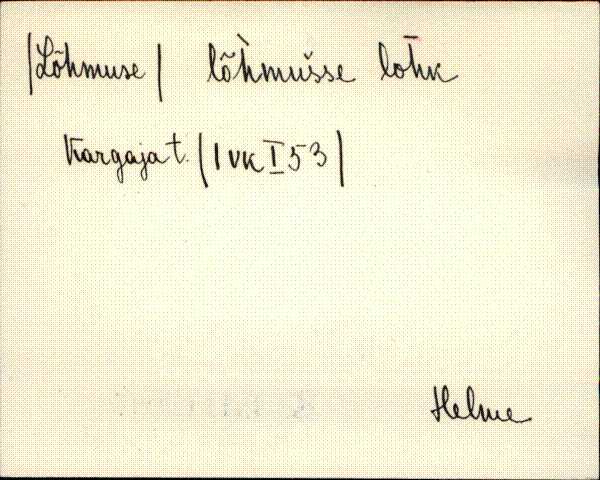 |Lõhmuse| lõh̀mušse lot̄k
Kargaja t. (IVK I 53)
Helme